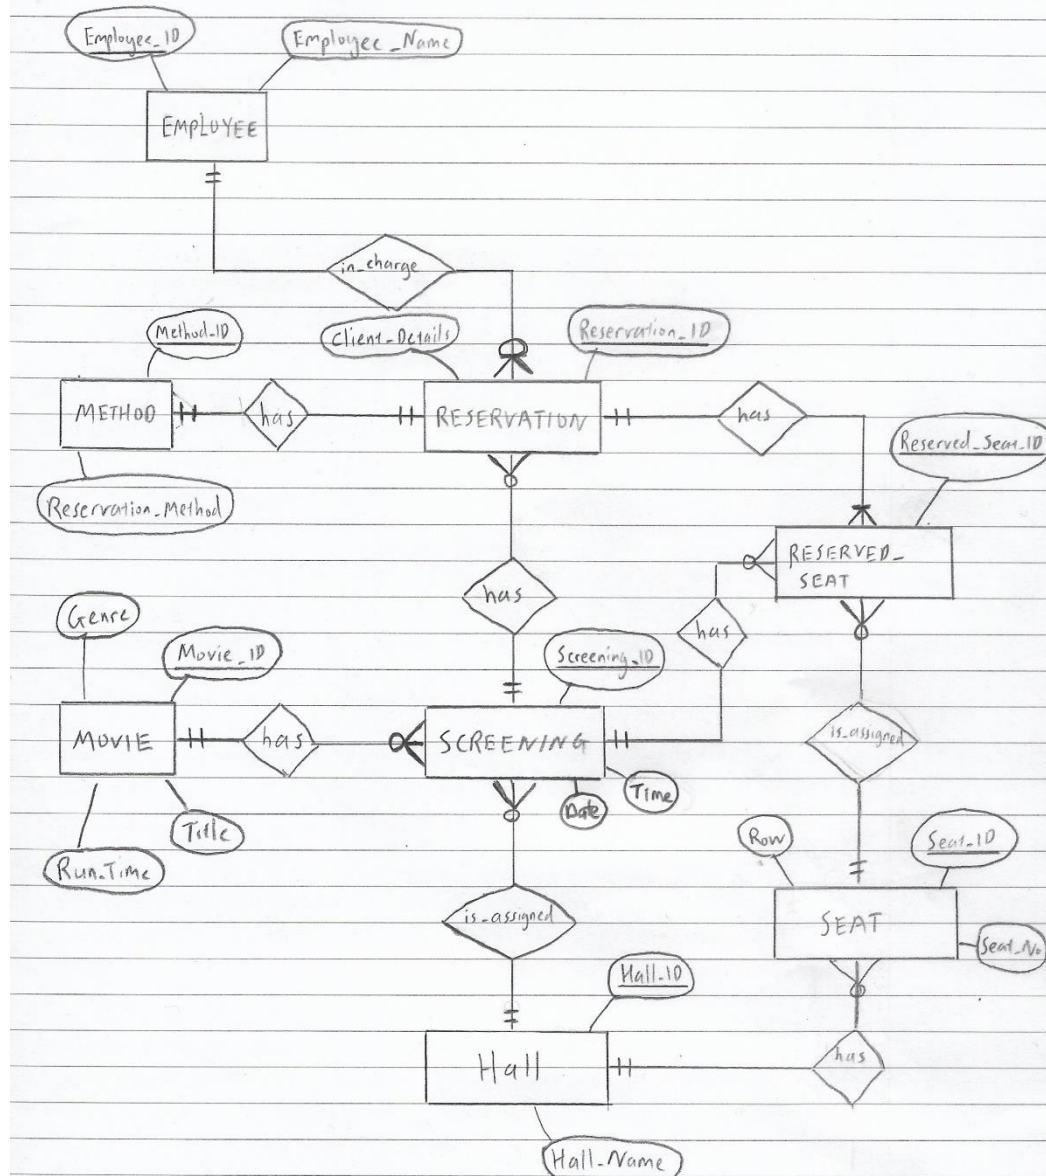 Employee_ID
Employee_Name
EMPLOYEE
in_charge
Method_ID
Client_Details
Reservation_ID
METHOD
has
RESERVATION
has
Reserved_Seat_ID
Reservation_Method
RESERVED_
SEAT
has
has
Genre
Movie_ID
Screening_ID
MOVIE
has
SCREENING
is_assigned
Time
Date
Title
Run_Time
Row
Seat_ID
is_assigned
SEAT
Seat_No
Hall_ID
Hall
has
Hall_Name